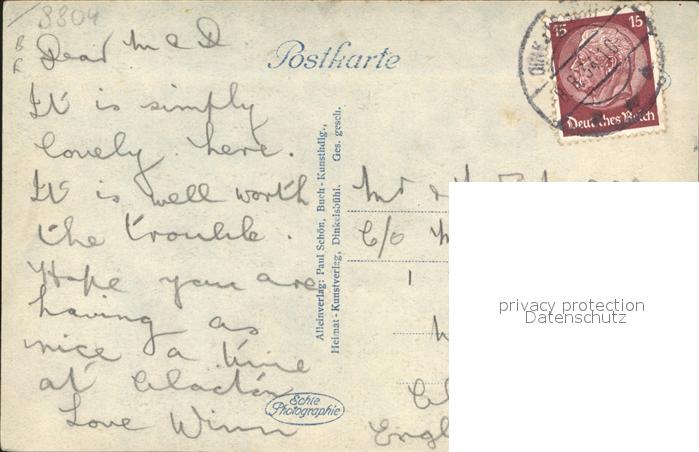 8804
B
R
Dear M & D
Postkarte
It is simply
lovely here.
It is well worth
the trouble.
Hope you are
having as
nice a time
at Clacton
Love Winn
Echte
Photographie
Alleinverlag: Paul Schön, Buch-Kunsthdlg.,
Heimat-Kunstverlag, Dinkelsbühl. Ges. gesch.
15 15
Deutsches Reich
DINK
Mr &
C/o
Engl
privacy protection
Datenschutz